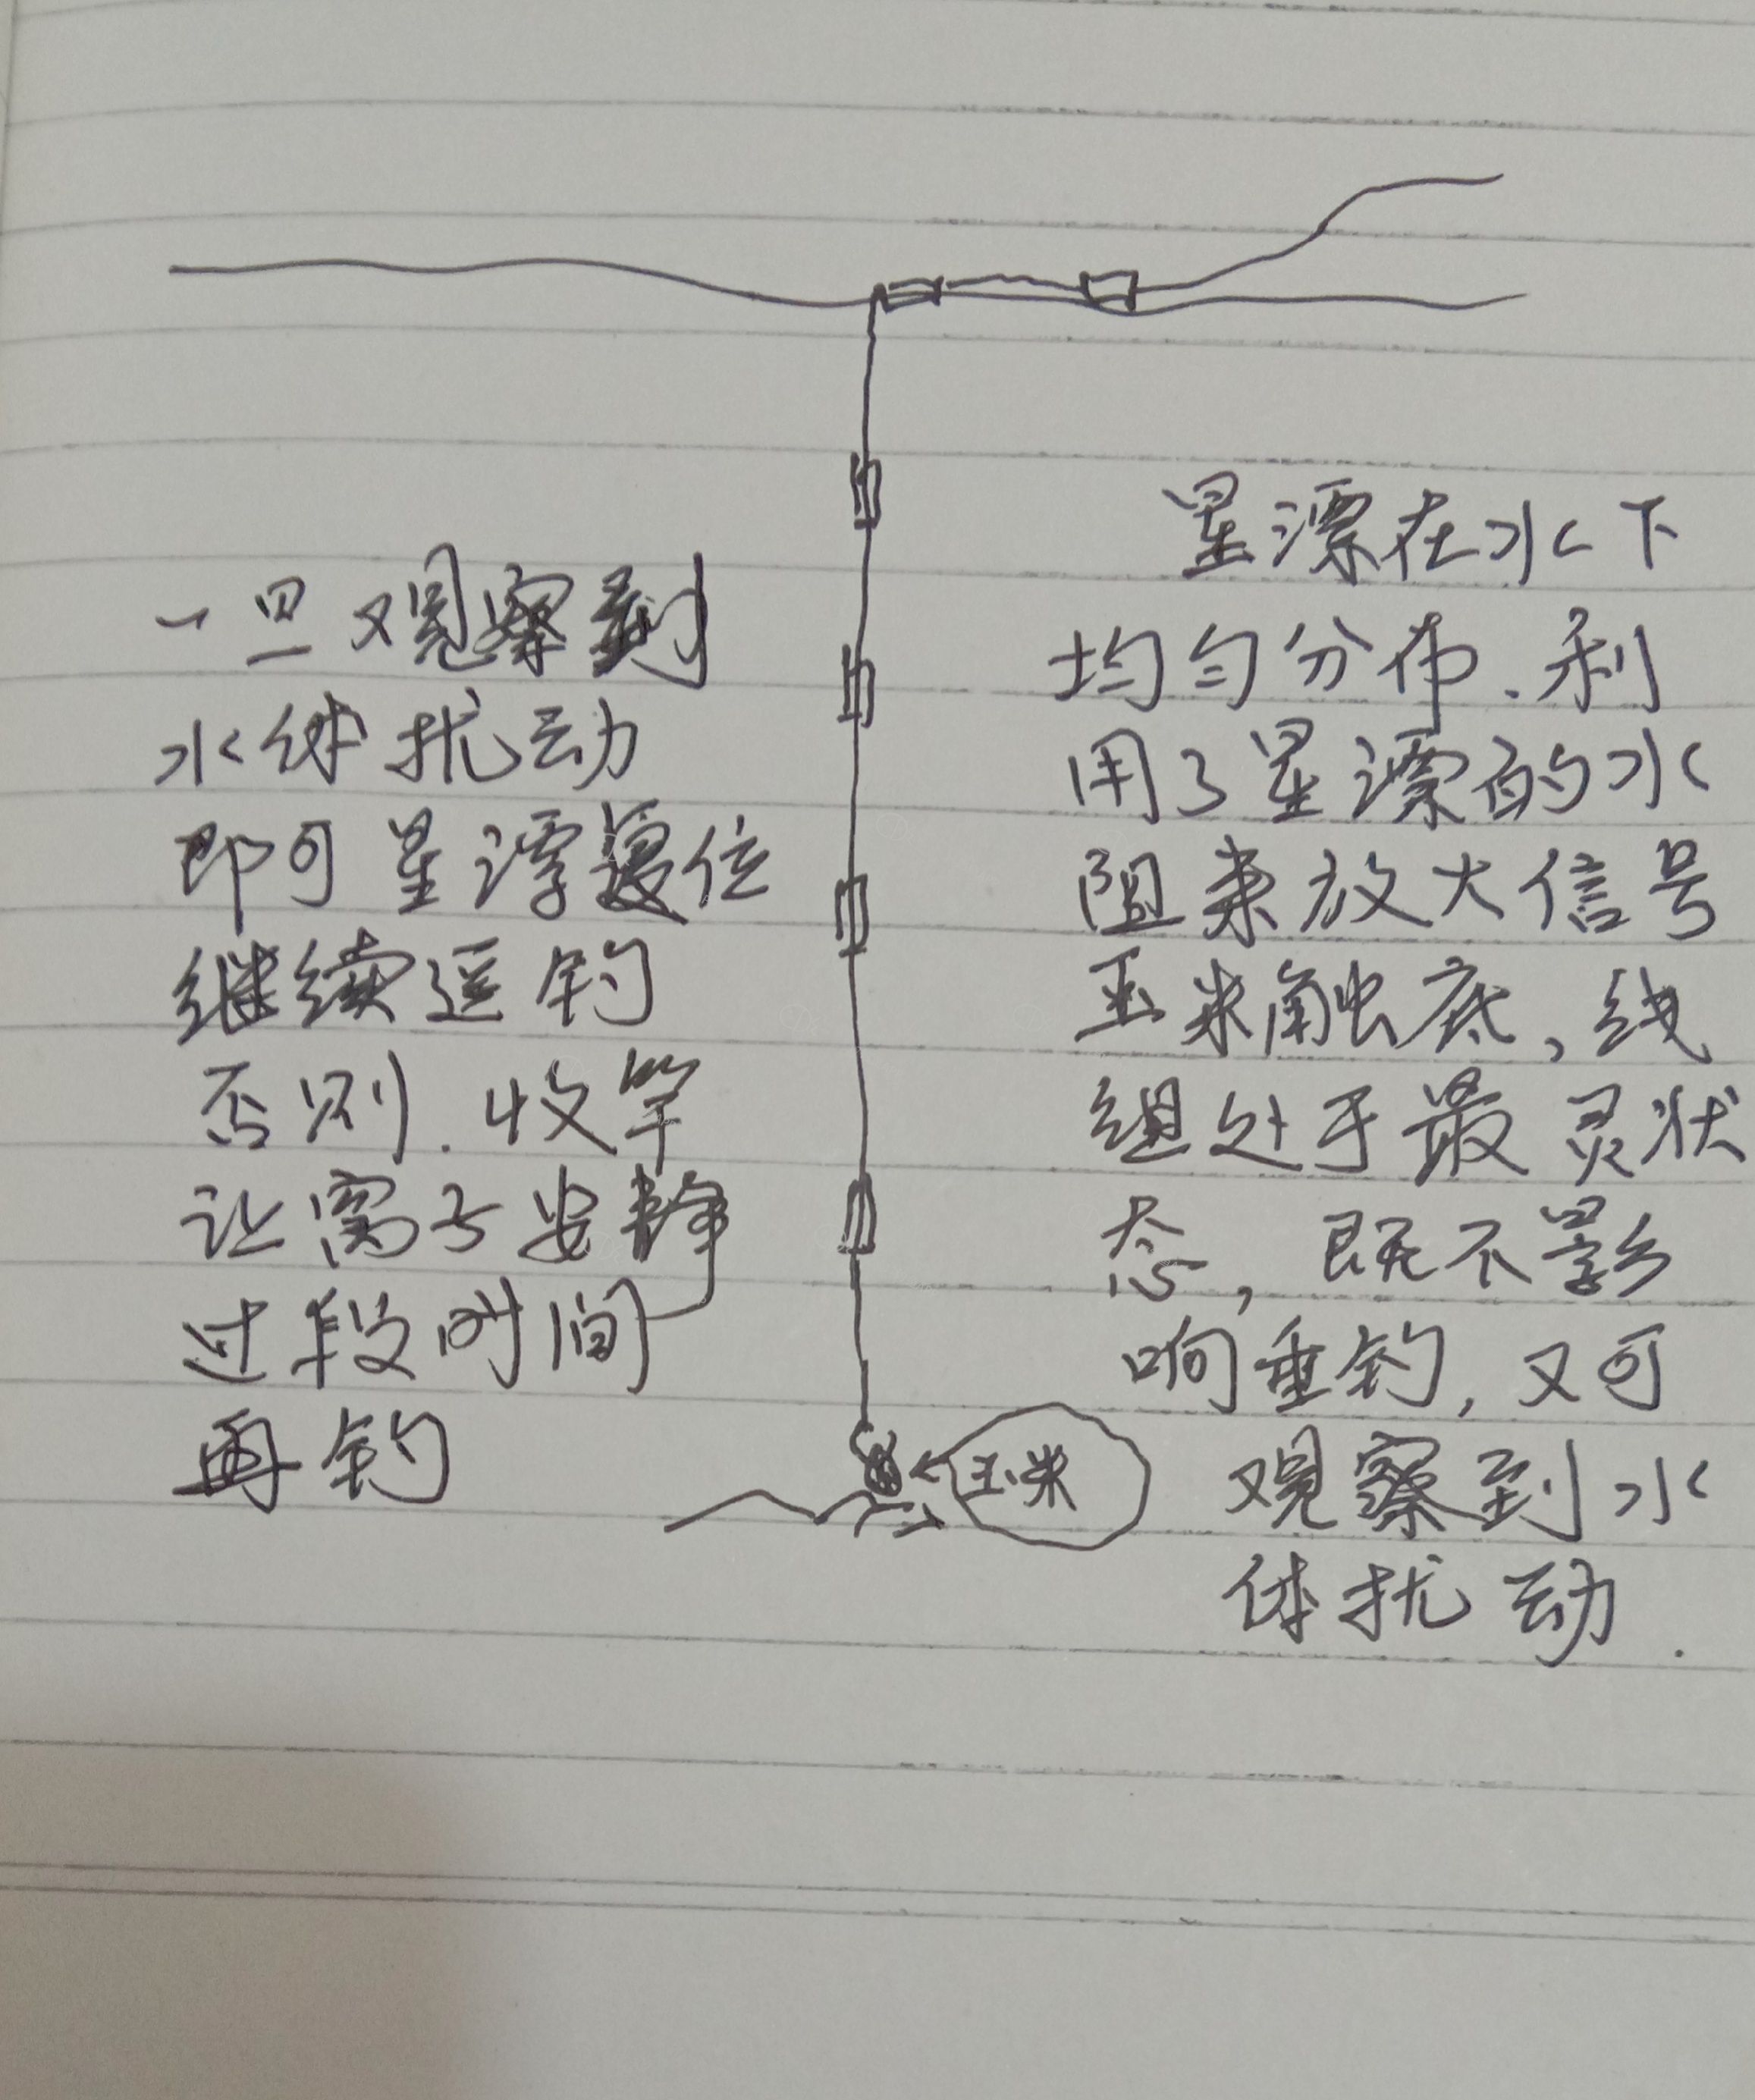 一旦观察到
水体扰动
即可星漂复位
继续逗钓
否则.收竿
让窝子安静
过段时间
再钓
星漂在水下
均匀分布、利
用了星漂的水
阻来放大信号
玉米触底,线
组处于最灵状
态,既不影
响垂钓,又可
观察到水
体扰动.
玉米